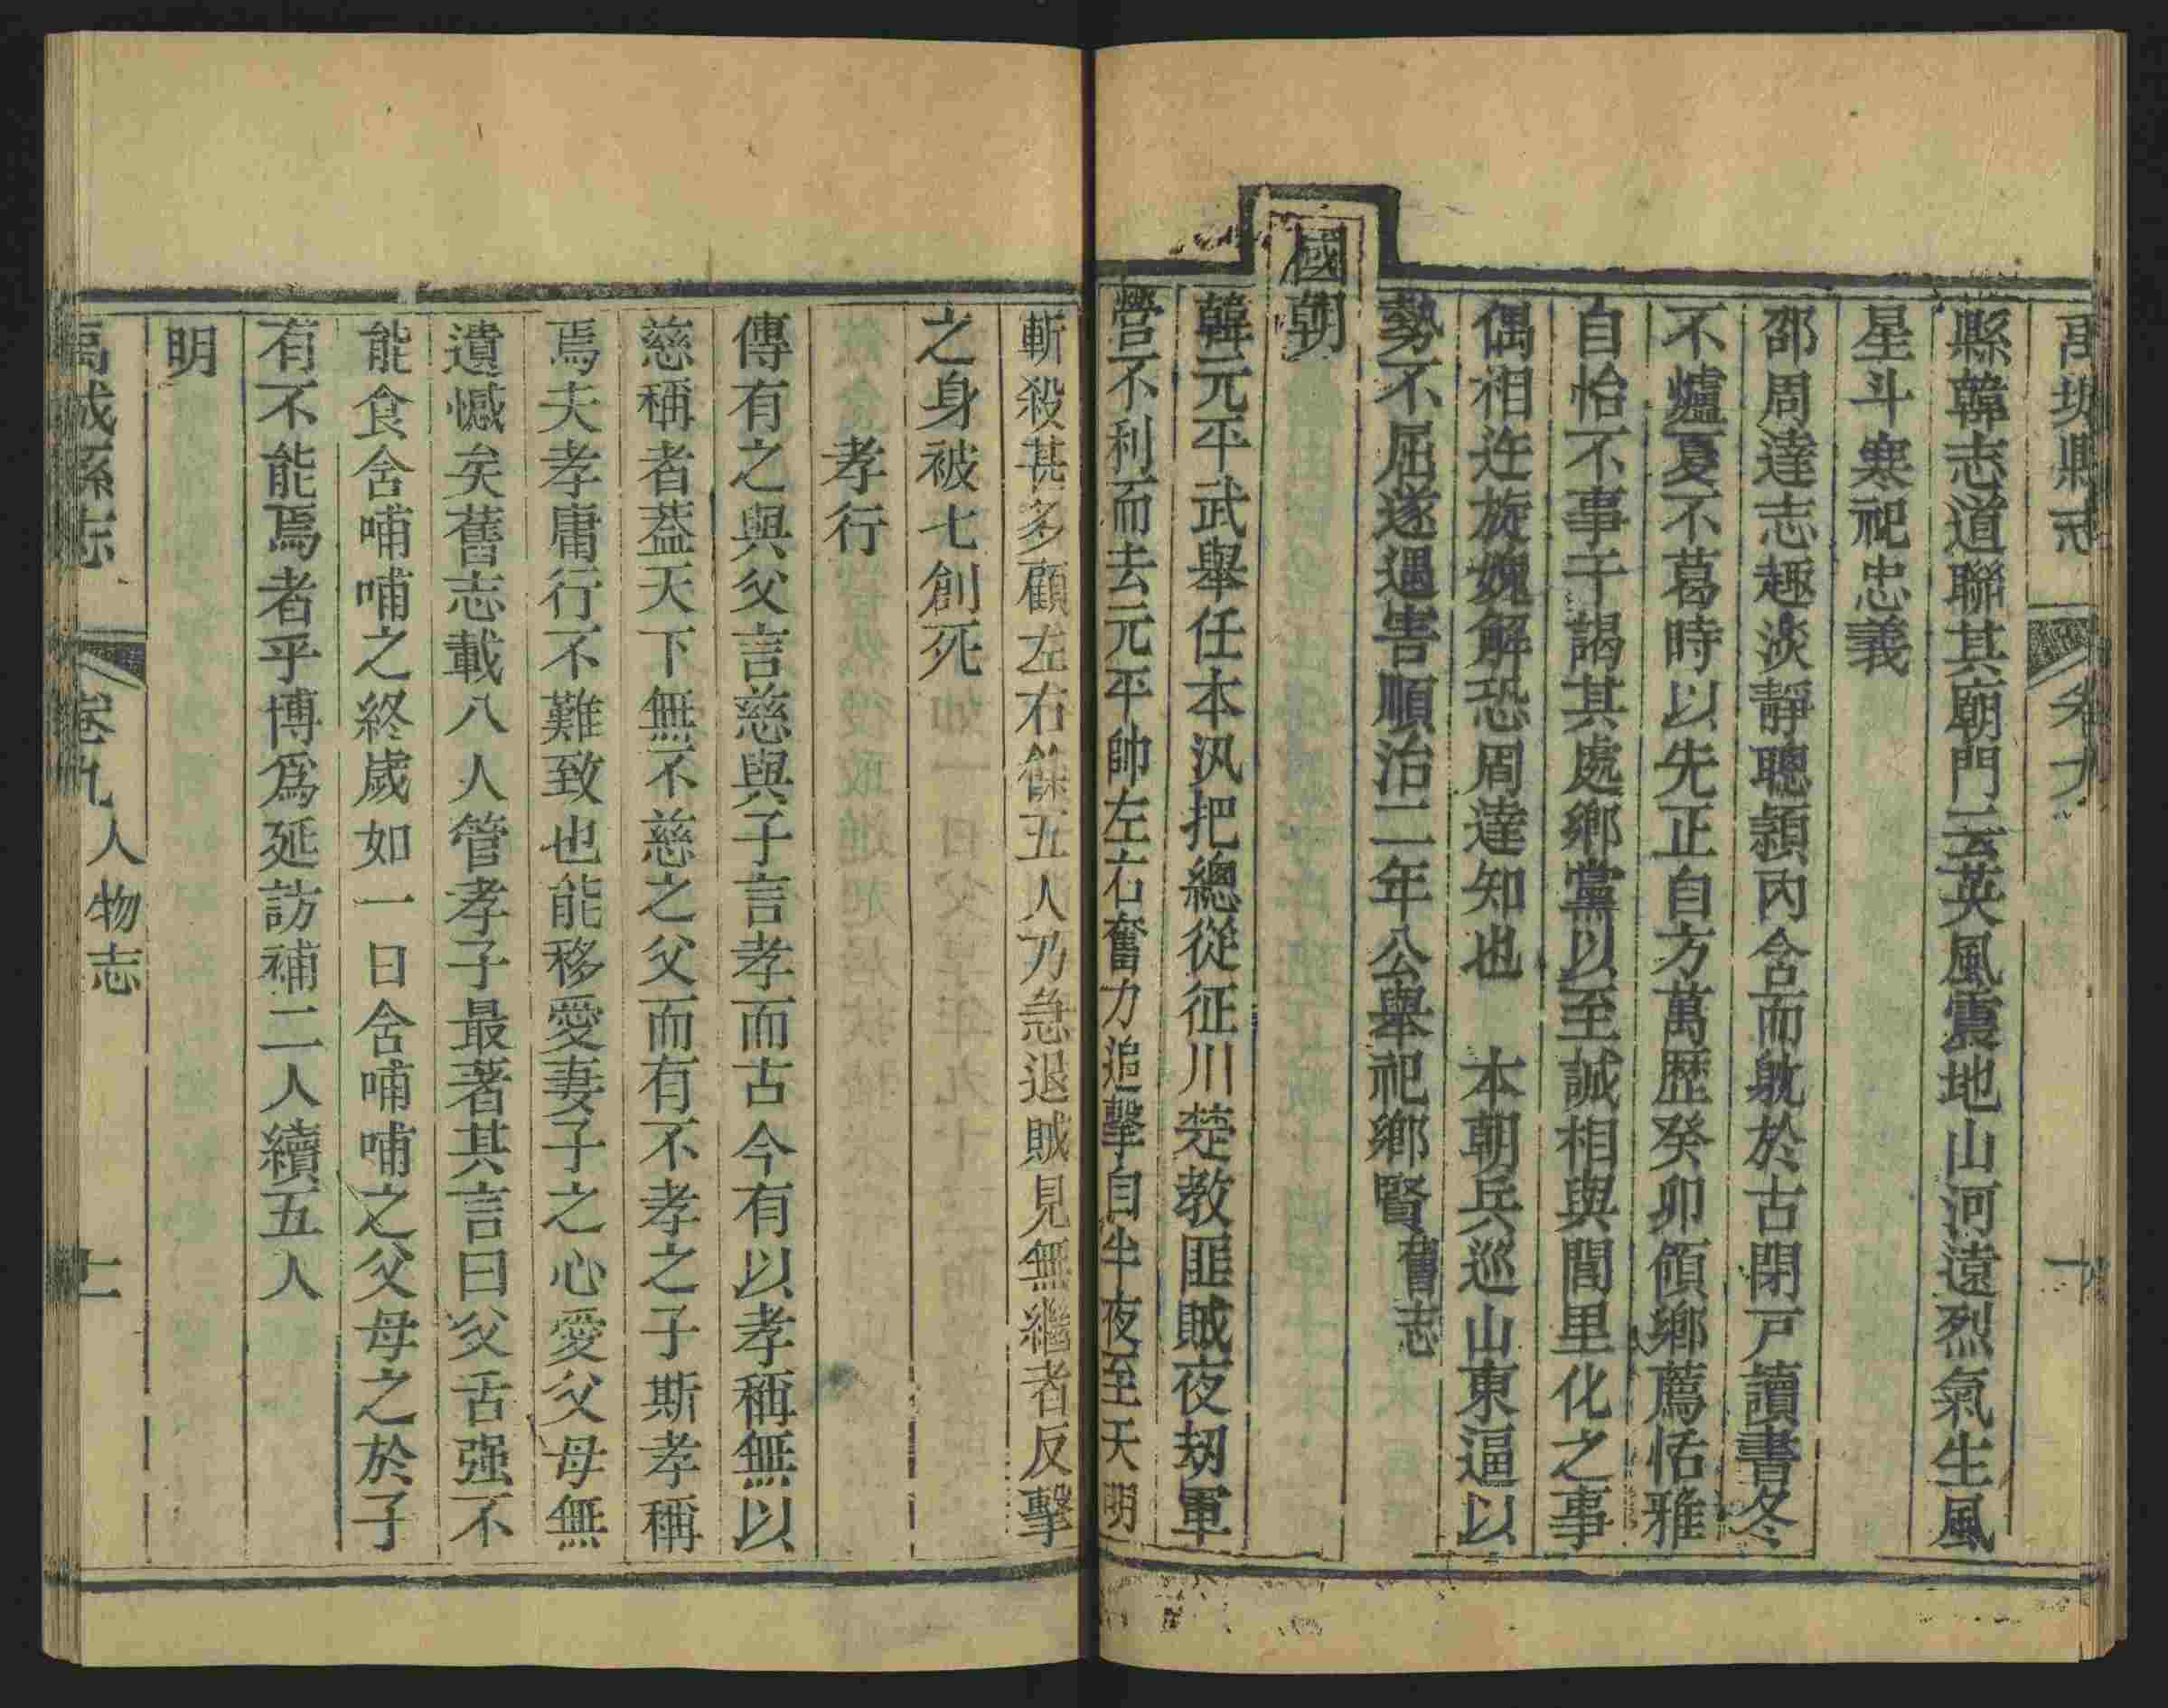 禹城縣志 卷九
縣韓志道聯其廟門云英風震地山河遠烈氣生風
星斗寒祀忠義
邵周達志趣淡靜聰穎內含而敏於古閉戸讀書冬
不爐夏不葛時以先正自方萬歴癸卯領鄉薦恬雅
自怡不事干謁其處鄉黨以至誠相與閭里化之事
偶相迕旋媿解恐周達知也　本朝兵巡山東逼以
勢不屈遂遇害順治二年公舉祀鄉賢舊志
國朝
韓元平武舉任本汛把總從征川楚教匪賊夜刼軍
營不利而去元平帥左右奮力追擊自半夜至天明
斬殺甚多顧左右餘五人乃急退賊見無繼者反擊
之身被七創死
孝行
傳有之與父言慈與子言孝而古今有以孝稱無以
慈稱者葢天下無不慈之父而有不孝之子斯孝稱
焉夫孝庸行不難致也能移愛妻子之心愛父母無
遺憾矣舊志載八人管孝子最著其言曰父舌强不
能食舍哺哺之終歲如一日舍哺哺之父母之於子
有不能焉者乎博爲延訪補二人續五人
明
禹城縣志 卷九 人物志